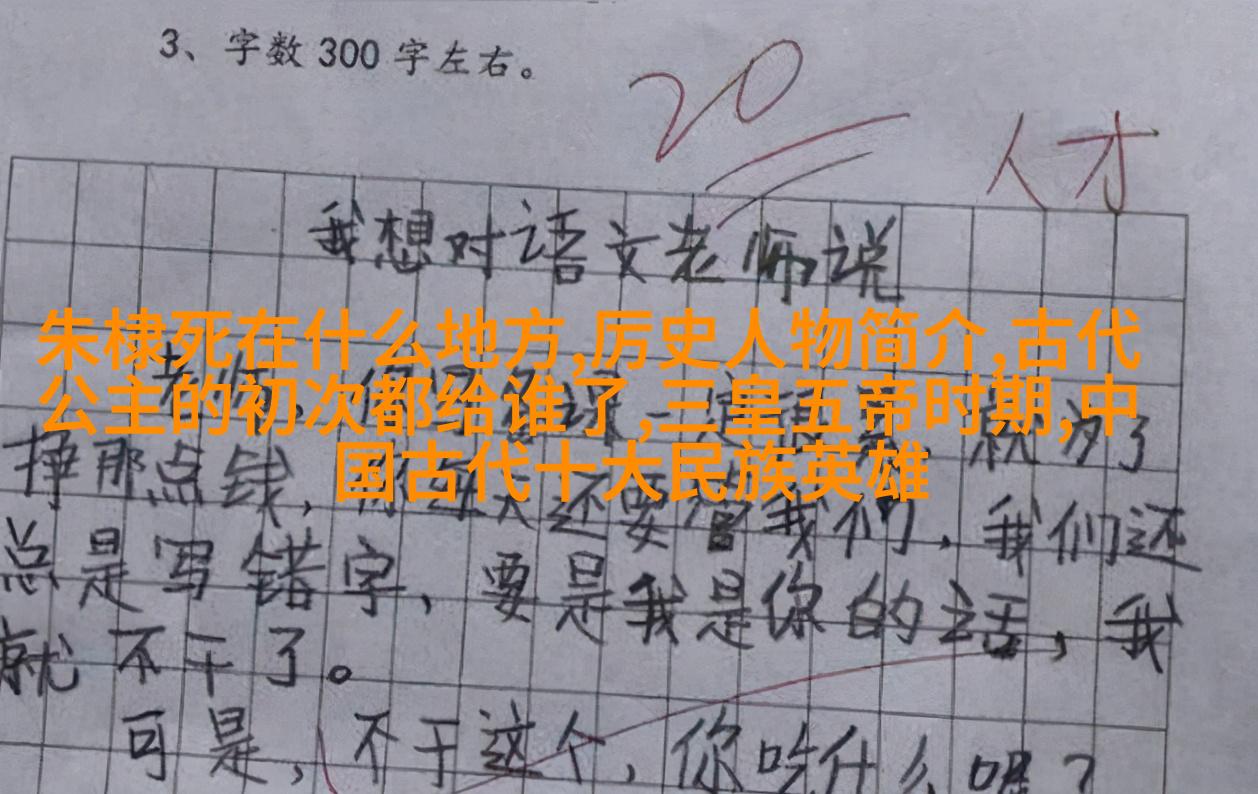 3、字数 300 字左右。
20
人才
我想对语文老师说
朱棣死在什么地方,厉史人物简介,古代
公主的初次都给谁了,三皇五帝时期,中
国古代十大民族英雄
挣那点钱,你每天还要管我们,我们还
总是写错字,要是我是你的话,我
就不干了。
可是,不干这个,你吃什么呢?